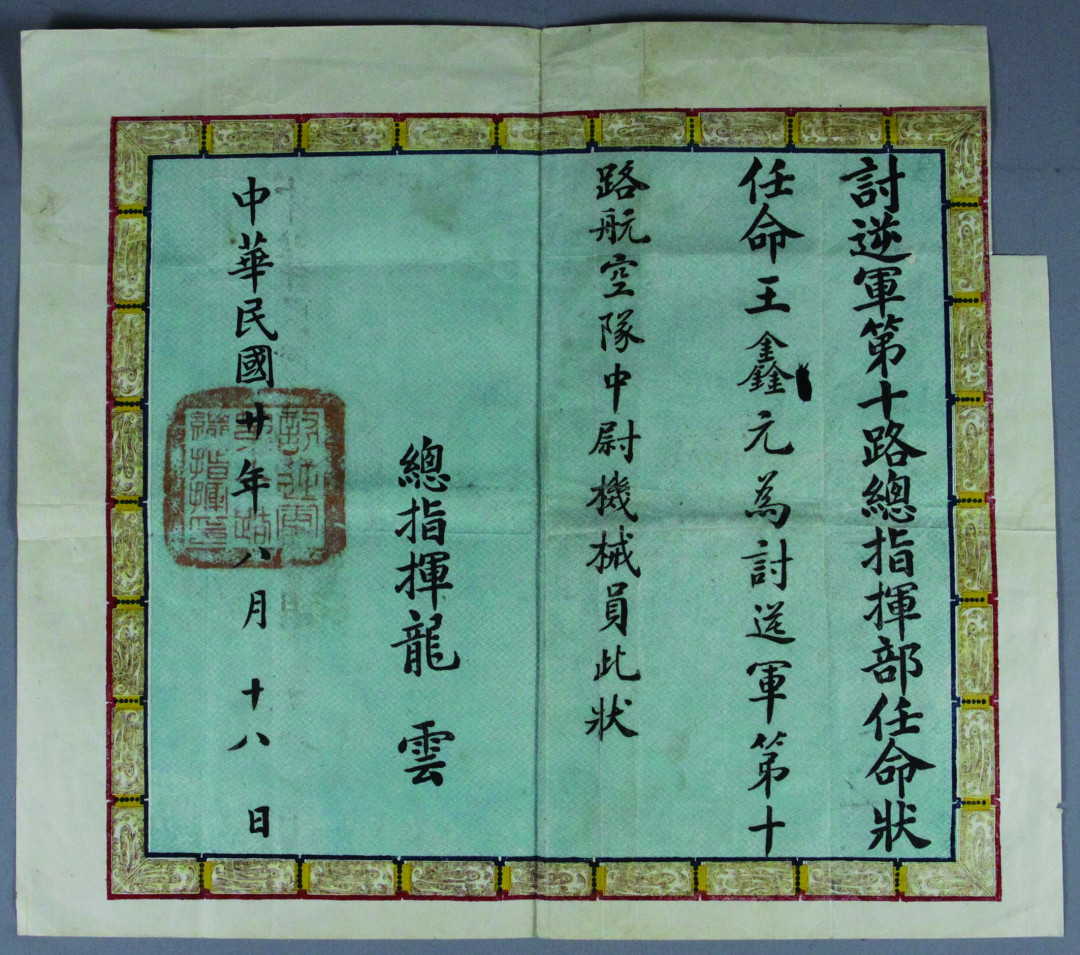 討逆軍第十路總指揮部任命狀
任命王鑫元為討逆軍第十
路航空隊中尉機械員此狀
總指揮龍 雲
中華民國廿年八月十八日
討逆軍
第十路
總指揮印